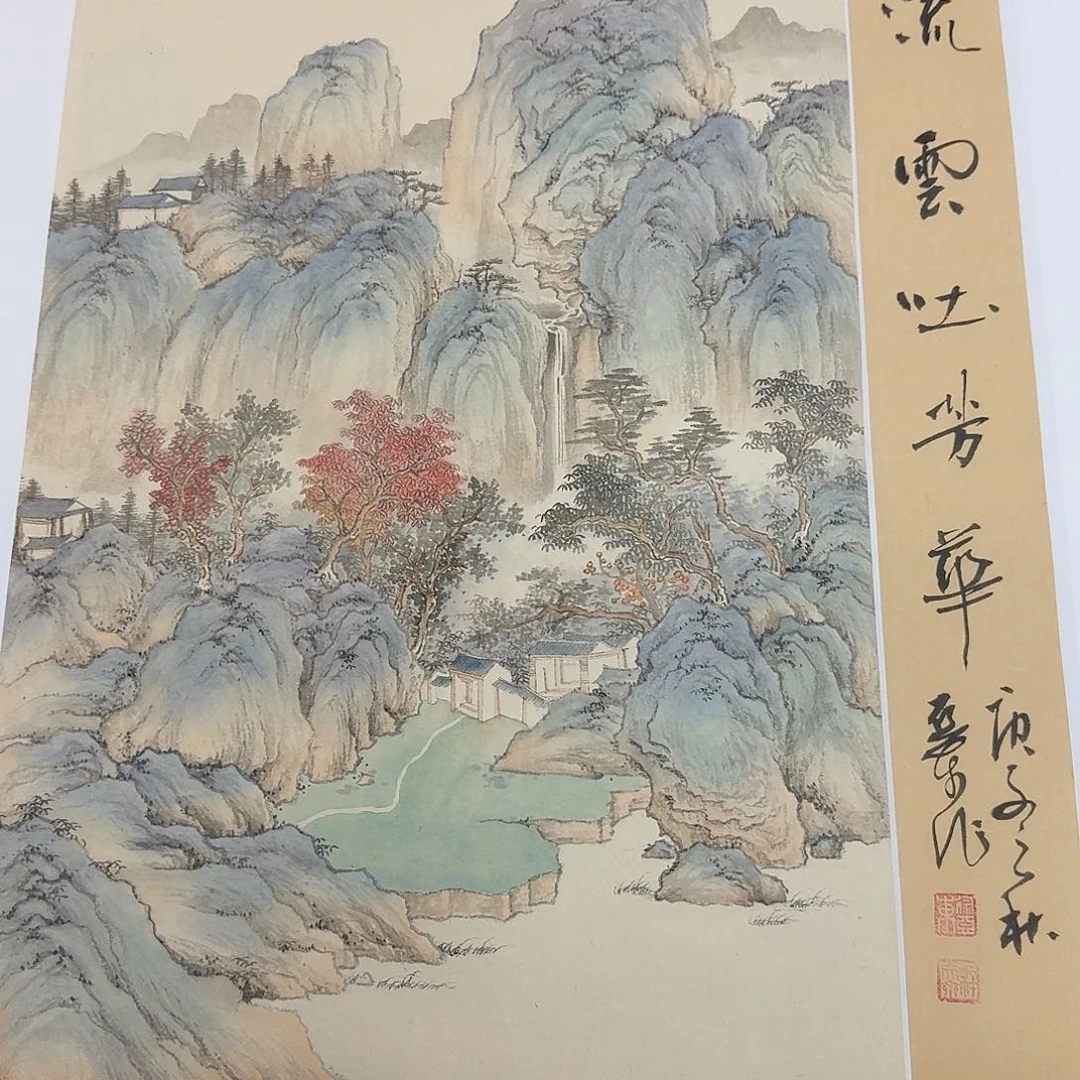 流雲吐芳華
庚子之秋
作